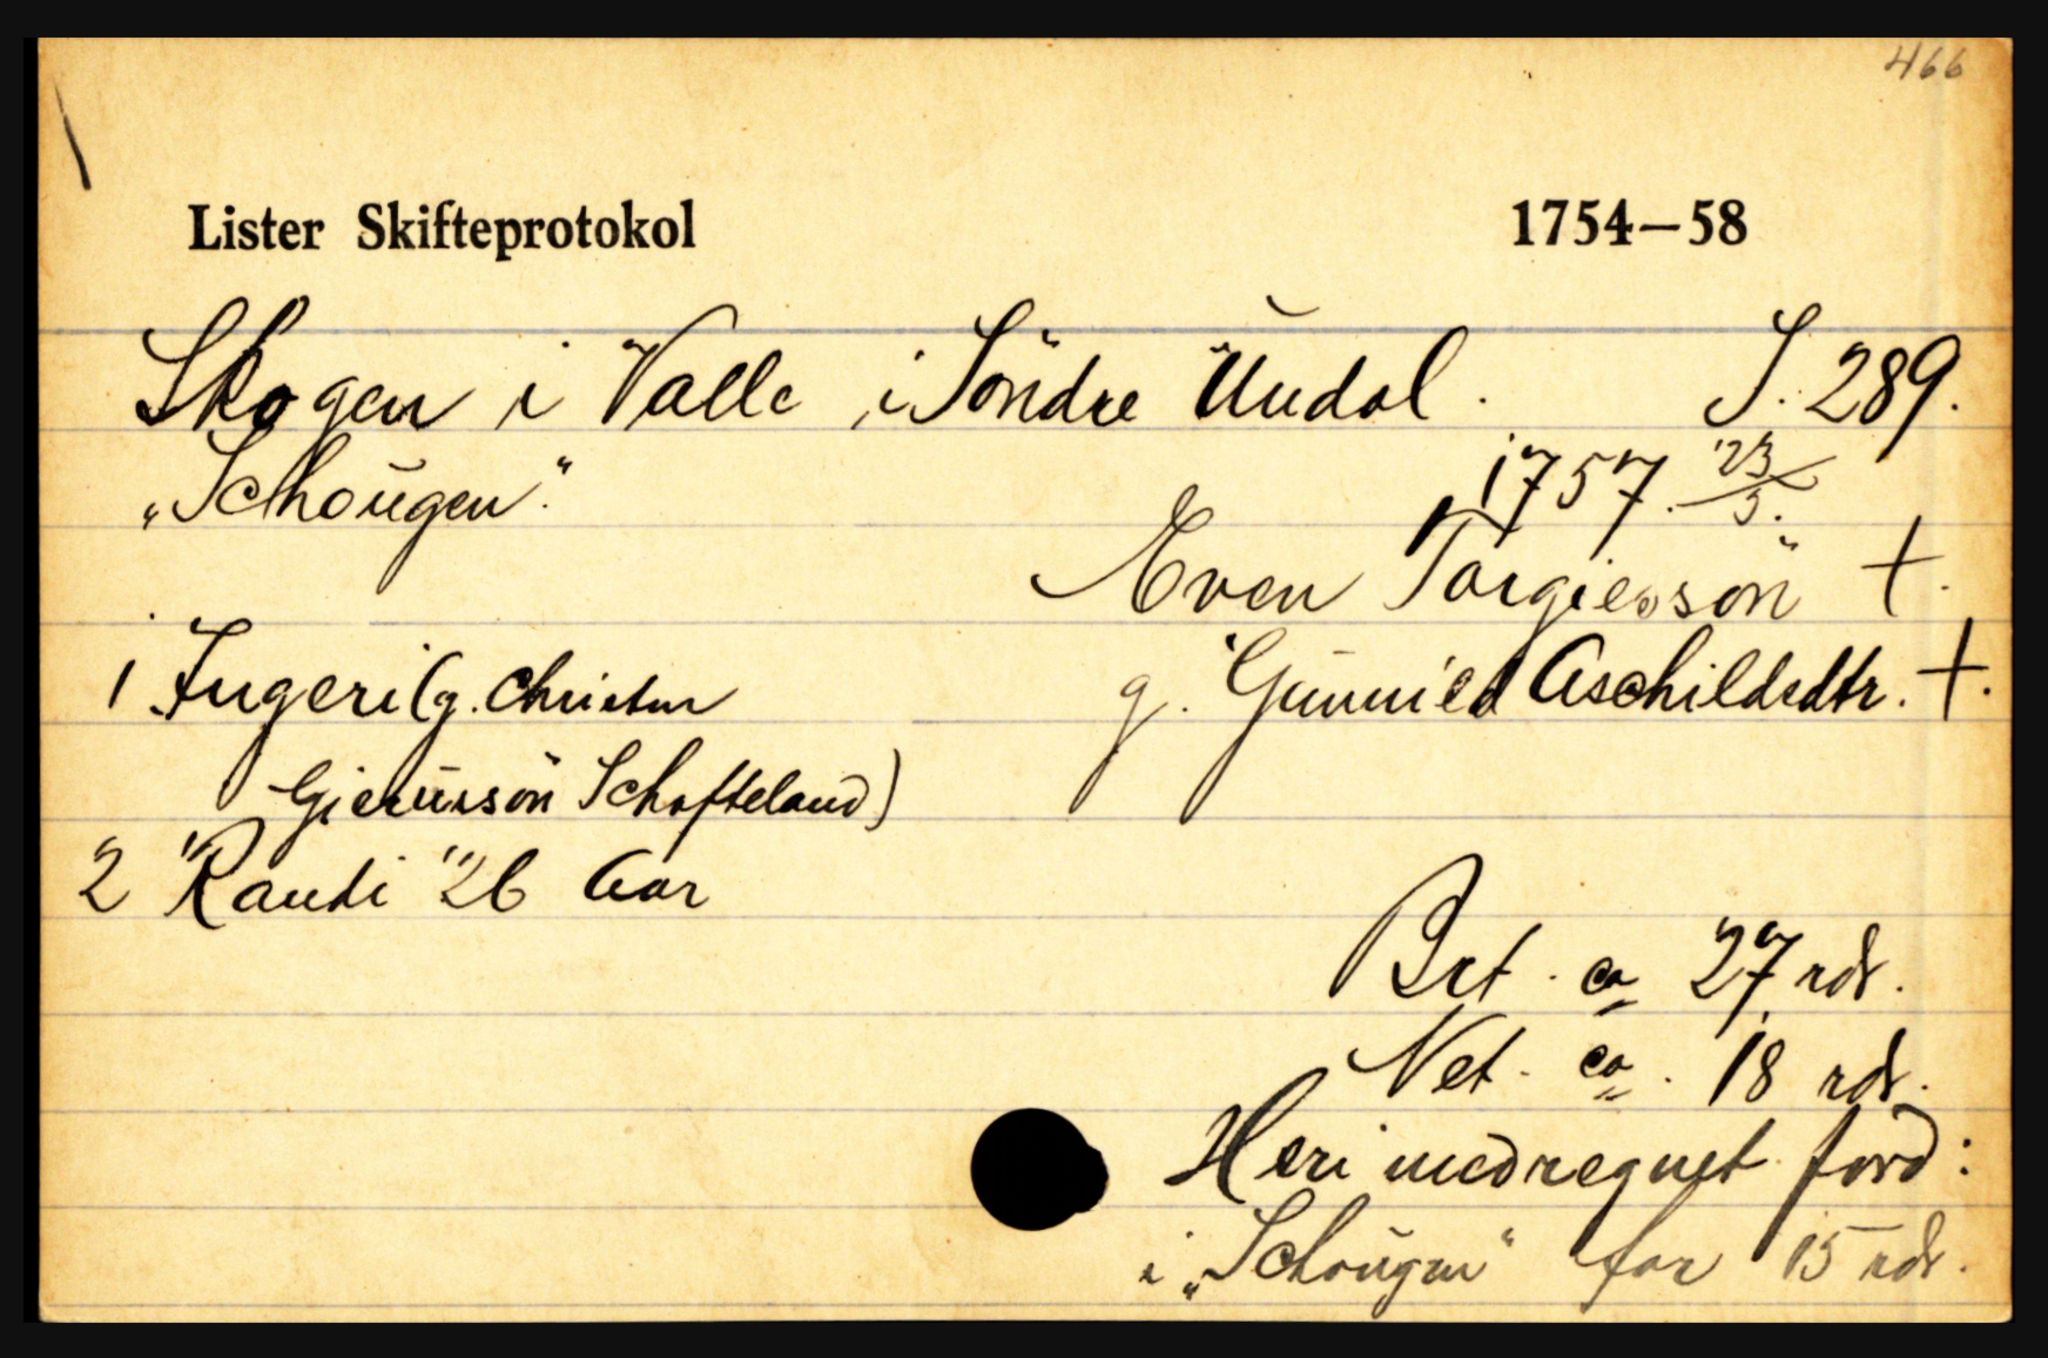 466
Lister Skifteprotokol 1754–58
Skogen i Valle i Söndre Undal. S. 289.
„Schougen“. 1757. 23/5.
Even Torgiesson †.
1 Ingeri (g. Christen g. Gunnild Aschildsdtr. †.
Gierulssön Schofteland)
2 Randi 26 Aar
Brt. ca 27 rdr.
Net. ca. 18 rdr.
Heri medregnet jord:
i „Schougen“ for 15 rdr.